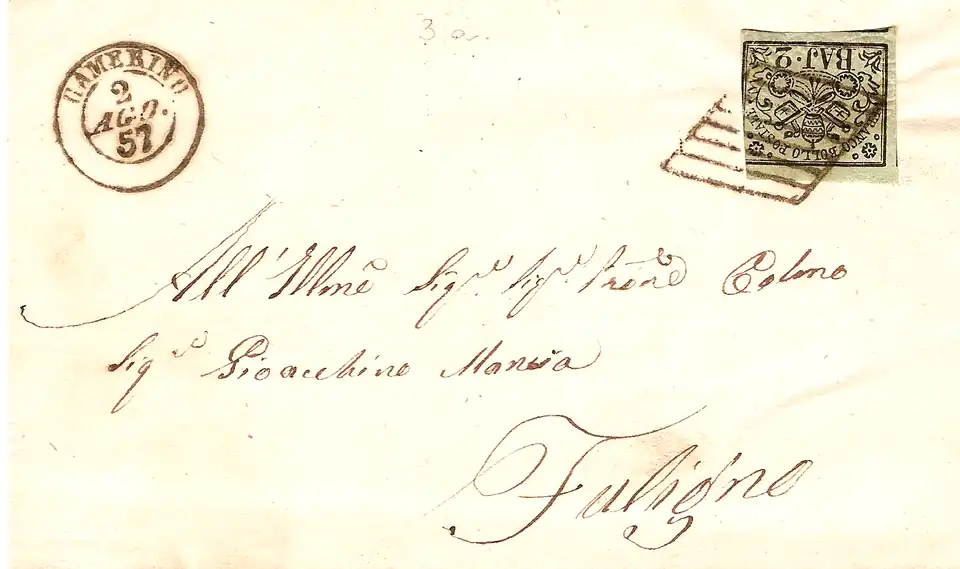 3 a
CAMERINO
2
AGO.
57
BAJ. 2
FRANCO BOLLO POSTALE
All' Illmo Sigr. Sigr. Prone Colmo
Sigr Gioacchino
Fuligno